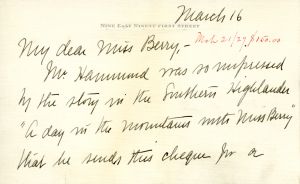 March 16
NINE EAST NINETY FIRST STREET
My dear Miss Berry,-
Mch 21/27 $150.00
Mr. Hammond was so impressed
by the story in the Southern Highlander
"A day in the mountains with Miss Berry"
that he sends this cheque for a